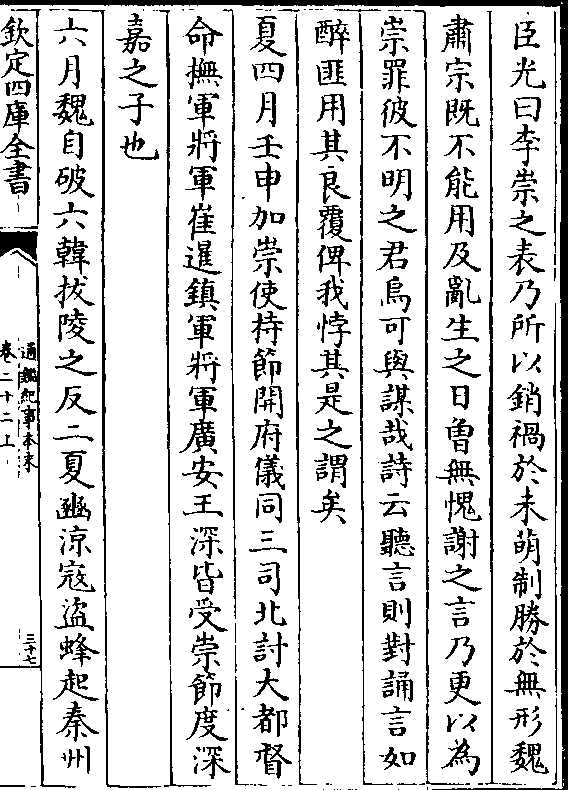 臣光曰李崇之表乃所以銷禍於未萌制勝於無形魏
肅宗既不能用及亂生之日曽無愧謝之言乃更以為
崇罪彼不明之君烏可與謀哉詩云聽言則對誦言如
醉匪用其良覆俾我悖其是之謂矣
夏四月壬申加崇使持節開府儀同三司北討大都督
命撫軍將軍崔暹鎮軍將軍廣安王深皆受崇節度深
嘉之子也
六月魏自破六韓拔陵之反二夏豳涼寇盜蜂起秦州
欽定四庫全書
通鑑紀事本末
卷二十二上
三十七